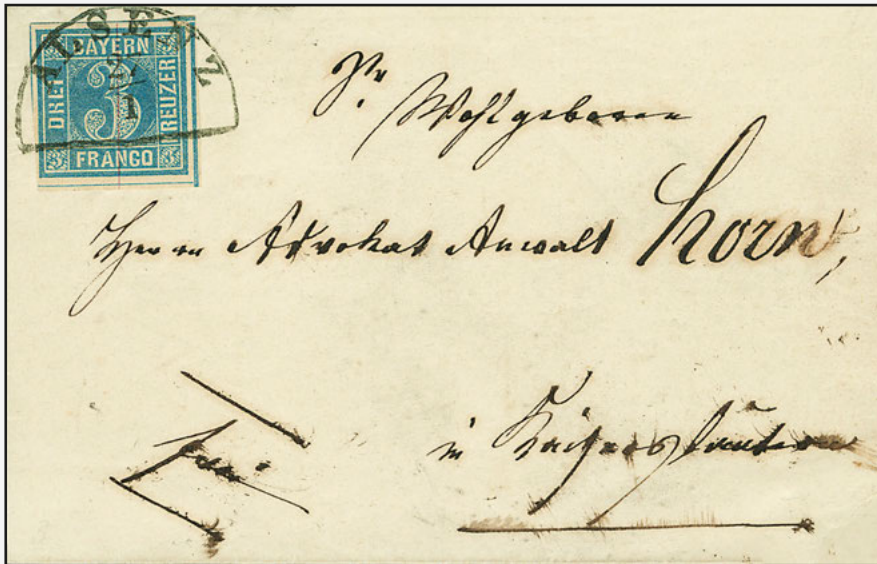 ALSENZ
1
BAYERN
DREI
3
KREUZER
FRANCO
Sr Wohlgeboren
Herrn Advokat Anwalt Horn,
frei
in Kaiserslautern